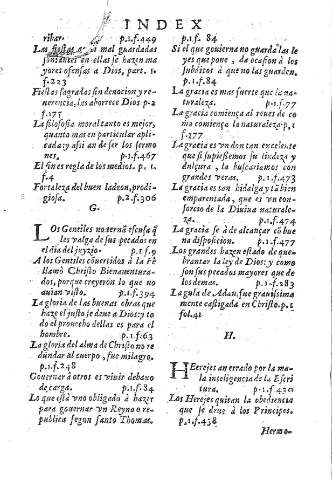 INDEX
ritar. p.1.f.449
Las fiestas mal guardadas
fiestas sagradas sin denocion y re-
uerencia, las aborrece Dios p.2
f.175
La filosofia moral tanto es mejor,
quanto mas en particular apli-
cada: y assi an de ser los sermo
nes. p.1.f.467
El fin es regla de los medios. p.1.
f.4
Fortaleza del buen ladron, prodi-
giosa. p.2.f.306
G.
Los Gentiles no ternā escusa q̄
les valga de sus pecados en
el dia del juyzio p.1 f.9
A los Gentiles cōuertidos à la Fè
llamò Christo Bienauentura-
dos, porque creyeron lo que no
auian visto. p.1.f.394
La gloria de las buenas obras que
haze el justo se deue a Dios; y to
do el prouecho dellas es para el
hombre. p.1.f.63
La gloria del alma de Christo no re
dundar al cuerpo, fue milagro.
p.1.f.248
Gouernar à otros es viuir debaxo
de carga. p.1.f.84
Lo que està vno obligado à hazer
para gouernar vn Reyno o re-
publica segun santo Thomas.
p.1.f. 84
Si el que gouierna no guarda las le
yes que pone, da ocasion à los
subditos à que no las guarden.
p.1.f.84
La gracia es mas fuerte que la na-
turaleza. p.1.f.77
La gracia comiença al reues de co
mo comiença la naturaleza.p.1
f.377
La gracia es vn don tan excelente
que si supiessemos su lindeza y
dulçura, la buscariamos con
grandes veras. p.1.f.473
La gracia es tan hidalga y tā bien
emparentada, que es vn con-
sorcio de la Diuina naturale-
za. p.1.f.474
La gracia se à de alcançar cō bue
na disposicion. p.1.f.477
Los grandes hazen estado de que-
brantar la ley de Dios: y como
son sus pecados mayores que de
los demas. p.1.f.283
La gula de Adan, fue grauissima
mente castigada en Christo.p.1
fol.41
H.
Herejes an errado por la ma-
la inteligencia de la Escri
tura. p.1.f.430
Los Herejes quitan la obediencia
que se deue à los Principes.
p.1.f.438
Hermo-